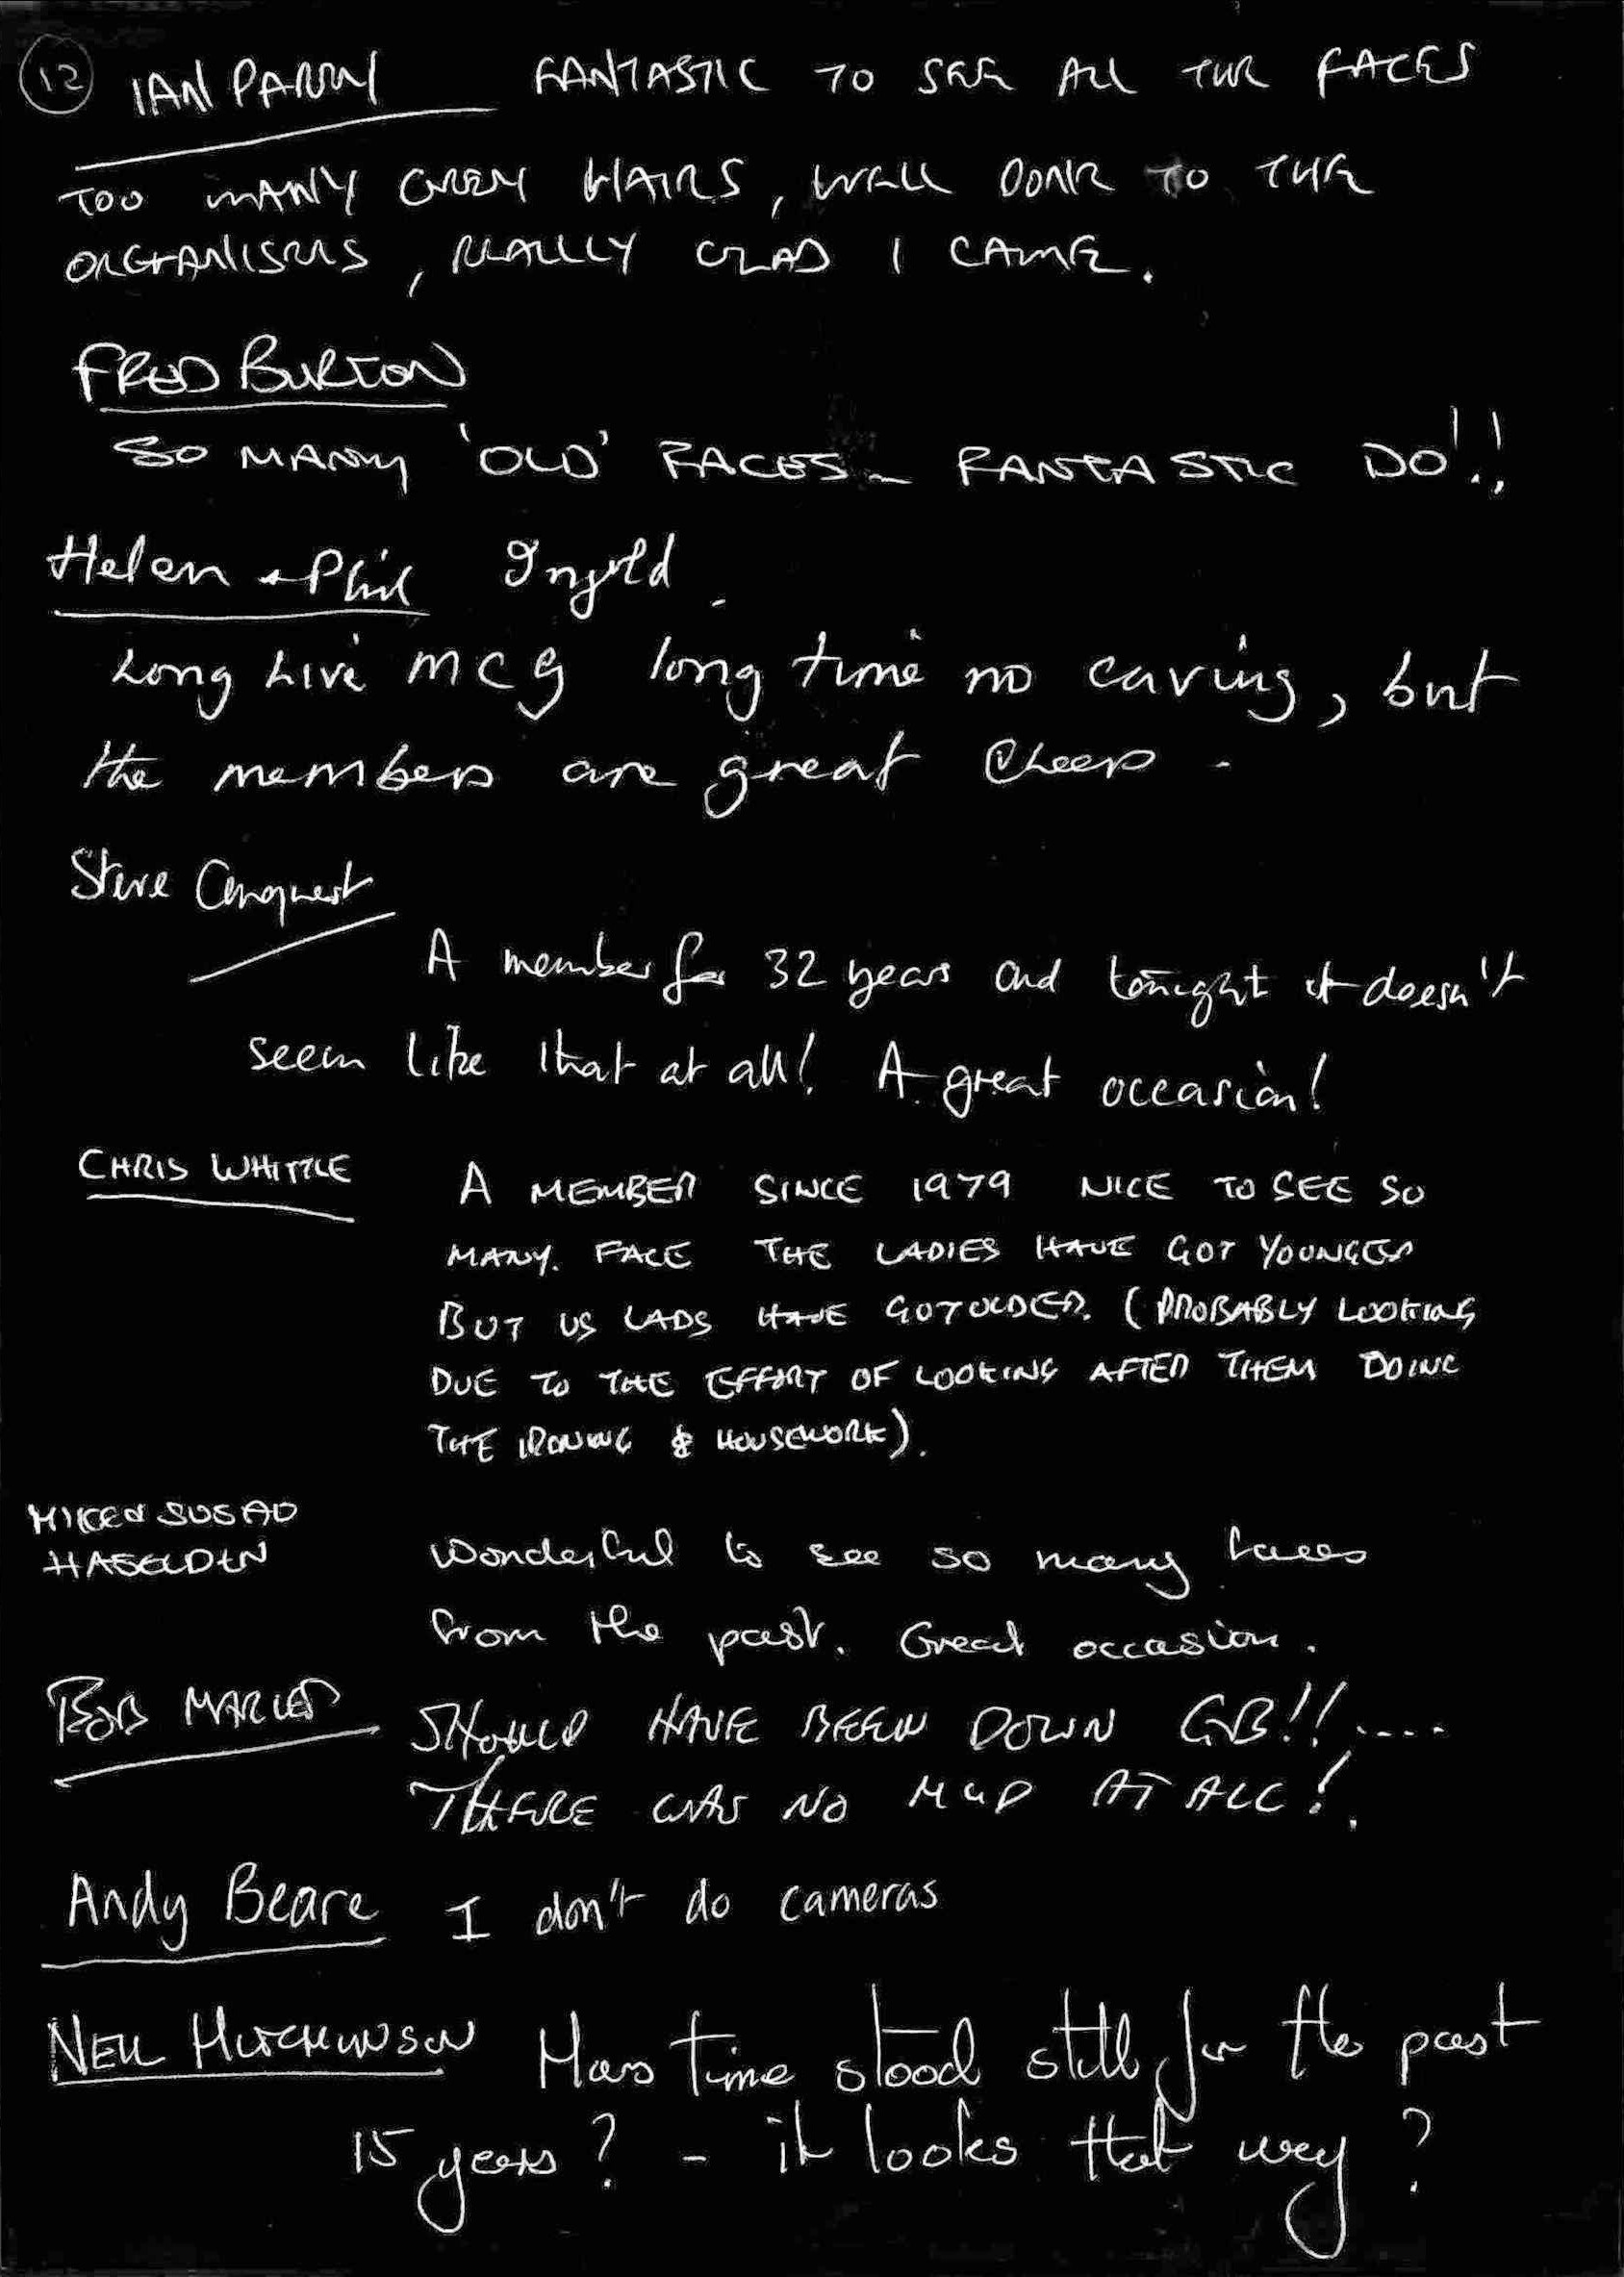 12 IAN PARRY FANTASTIC TO SEE ALL THE FACES
TOO MANY GREY HAIRS, WELL DONE TO THE
ORGANISERS, REALLY GLAD I CAME.
FRED BURTON
SO MANY 'OLD' FACES - FANTASTIC DO!!
Helen + Phil Ingold
Long Live MCG long time no caving, but
the members are great Cheers -
Steve Conquest
A member for 32 years and tonight it doesn't
seem like that at all! A great occasion!
CHRIS WHITTLE A MEMBER SINCE 1979 NICE TO SEE SO
MANY. FACE THE LADIES HAVE GOT YOUNGER
BUT US LADS HAVE GOT OLDER. (PROBABLY LOOKING
DUE TO THE EFFORT OF LOOKING AFTER THEM DOING
THE IRONING & HOUSEWORK).
MIKE & SUSAN
HASELDEN Wonderful to see so many faces
from the past. Great occasion.
BOB MARLED SHOULD HAVE BEEN DOWN GB!!....
THERE WAS NO MUD AT ALL!.
Andy Beare I don't do cameras
NEIL HUTCHINSON Has time stood still for the past
15 years? - it looks that way?